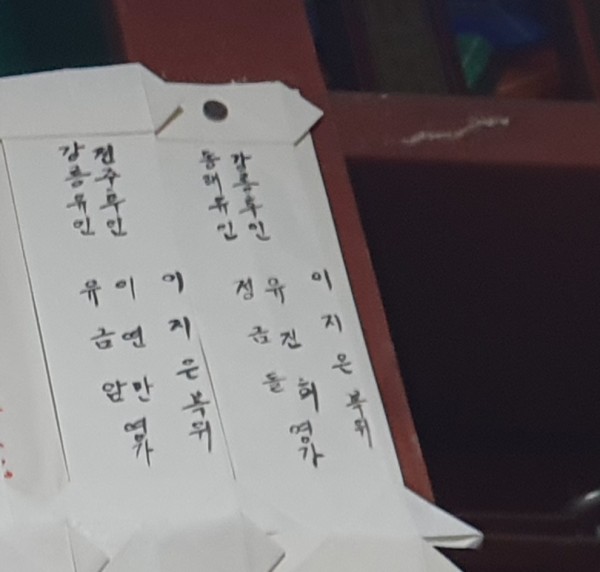 이지은복위
강릉후인 유진희 영가
동래유인 정금돌
이지은복위
전주후인 이연만 영가
강릉유인 유금암